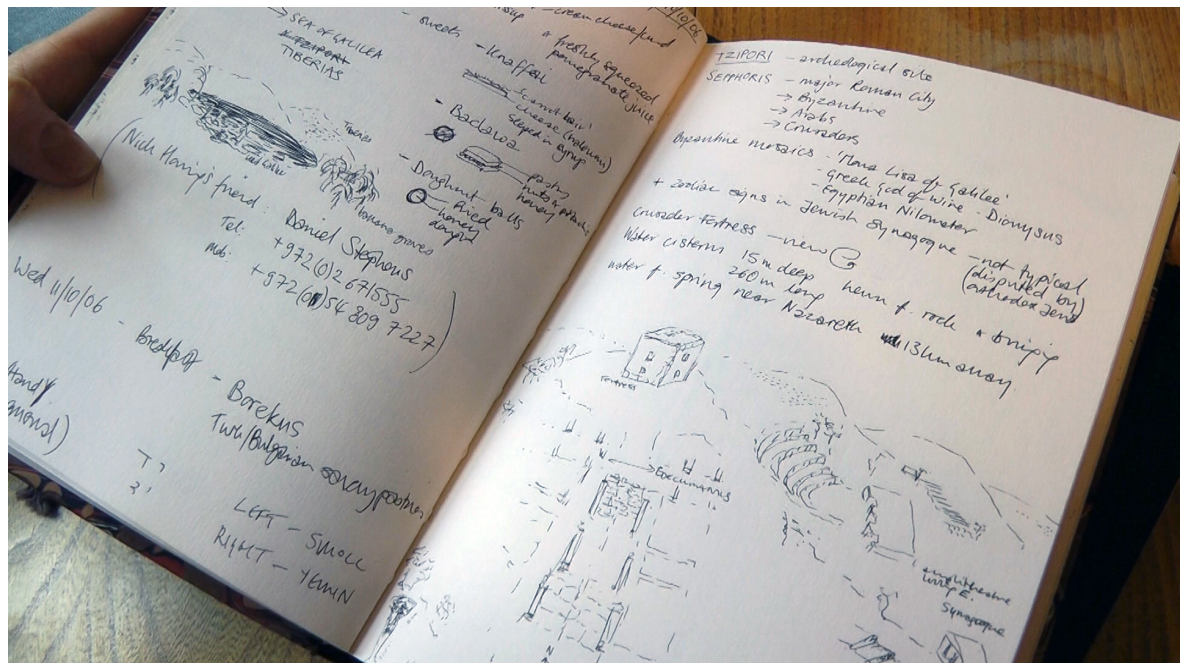 - cream cheese/
→ SEA OF GALILEA
TIBERIAS
- sweets
- Knaffeh
& freshly squeezed
pomegranate juice
cheese (haloumi)
steeped in syrup
- Baclawa
pastry
nuts &
honey
- Doughnut balls
fried
honey
dough
Tiberias
banana groves
(Nick Harris's friend : Daniel Stephens
Tel: +972(0)2 671555
Mob: +972(0)54 809 7227)
Wed 11/10/06 - Breakfast - Borekus
Turk/Bulgarian savoury pastries
(Handy
LEFT - SMOLL
RIGHT - YEMIN
/10/06
TZIPORI - archeological site
SEPPHORIS - major Roman City
→ Byzantine
→ Arabs
→ Crusaders
Byzantine mosaics - 'Mona Lisa of Galilee'
- Greek God of Wine - Dionysus
- Egyptian Nilometer
+ zodiac signs in Jewish Synagogue - not typical
(disputed by
orthodox Jews)
Crusader Fortress - view
Water cisterns 15m deep hewn f. rock & bringing
260m long
water f. spring near Nazareth 13km away.
Fortress
→ Decumannus
amphitheatre
Synagogue
N